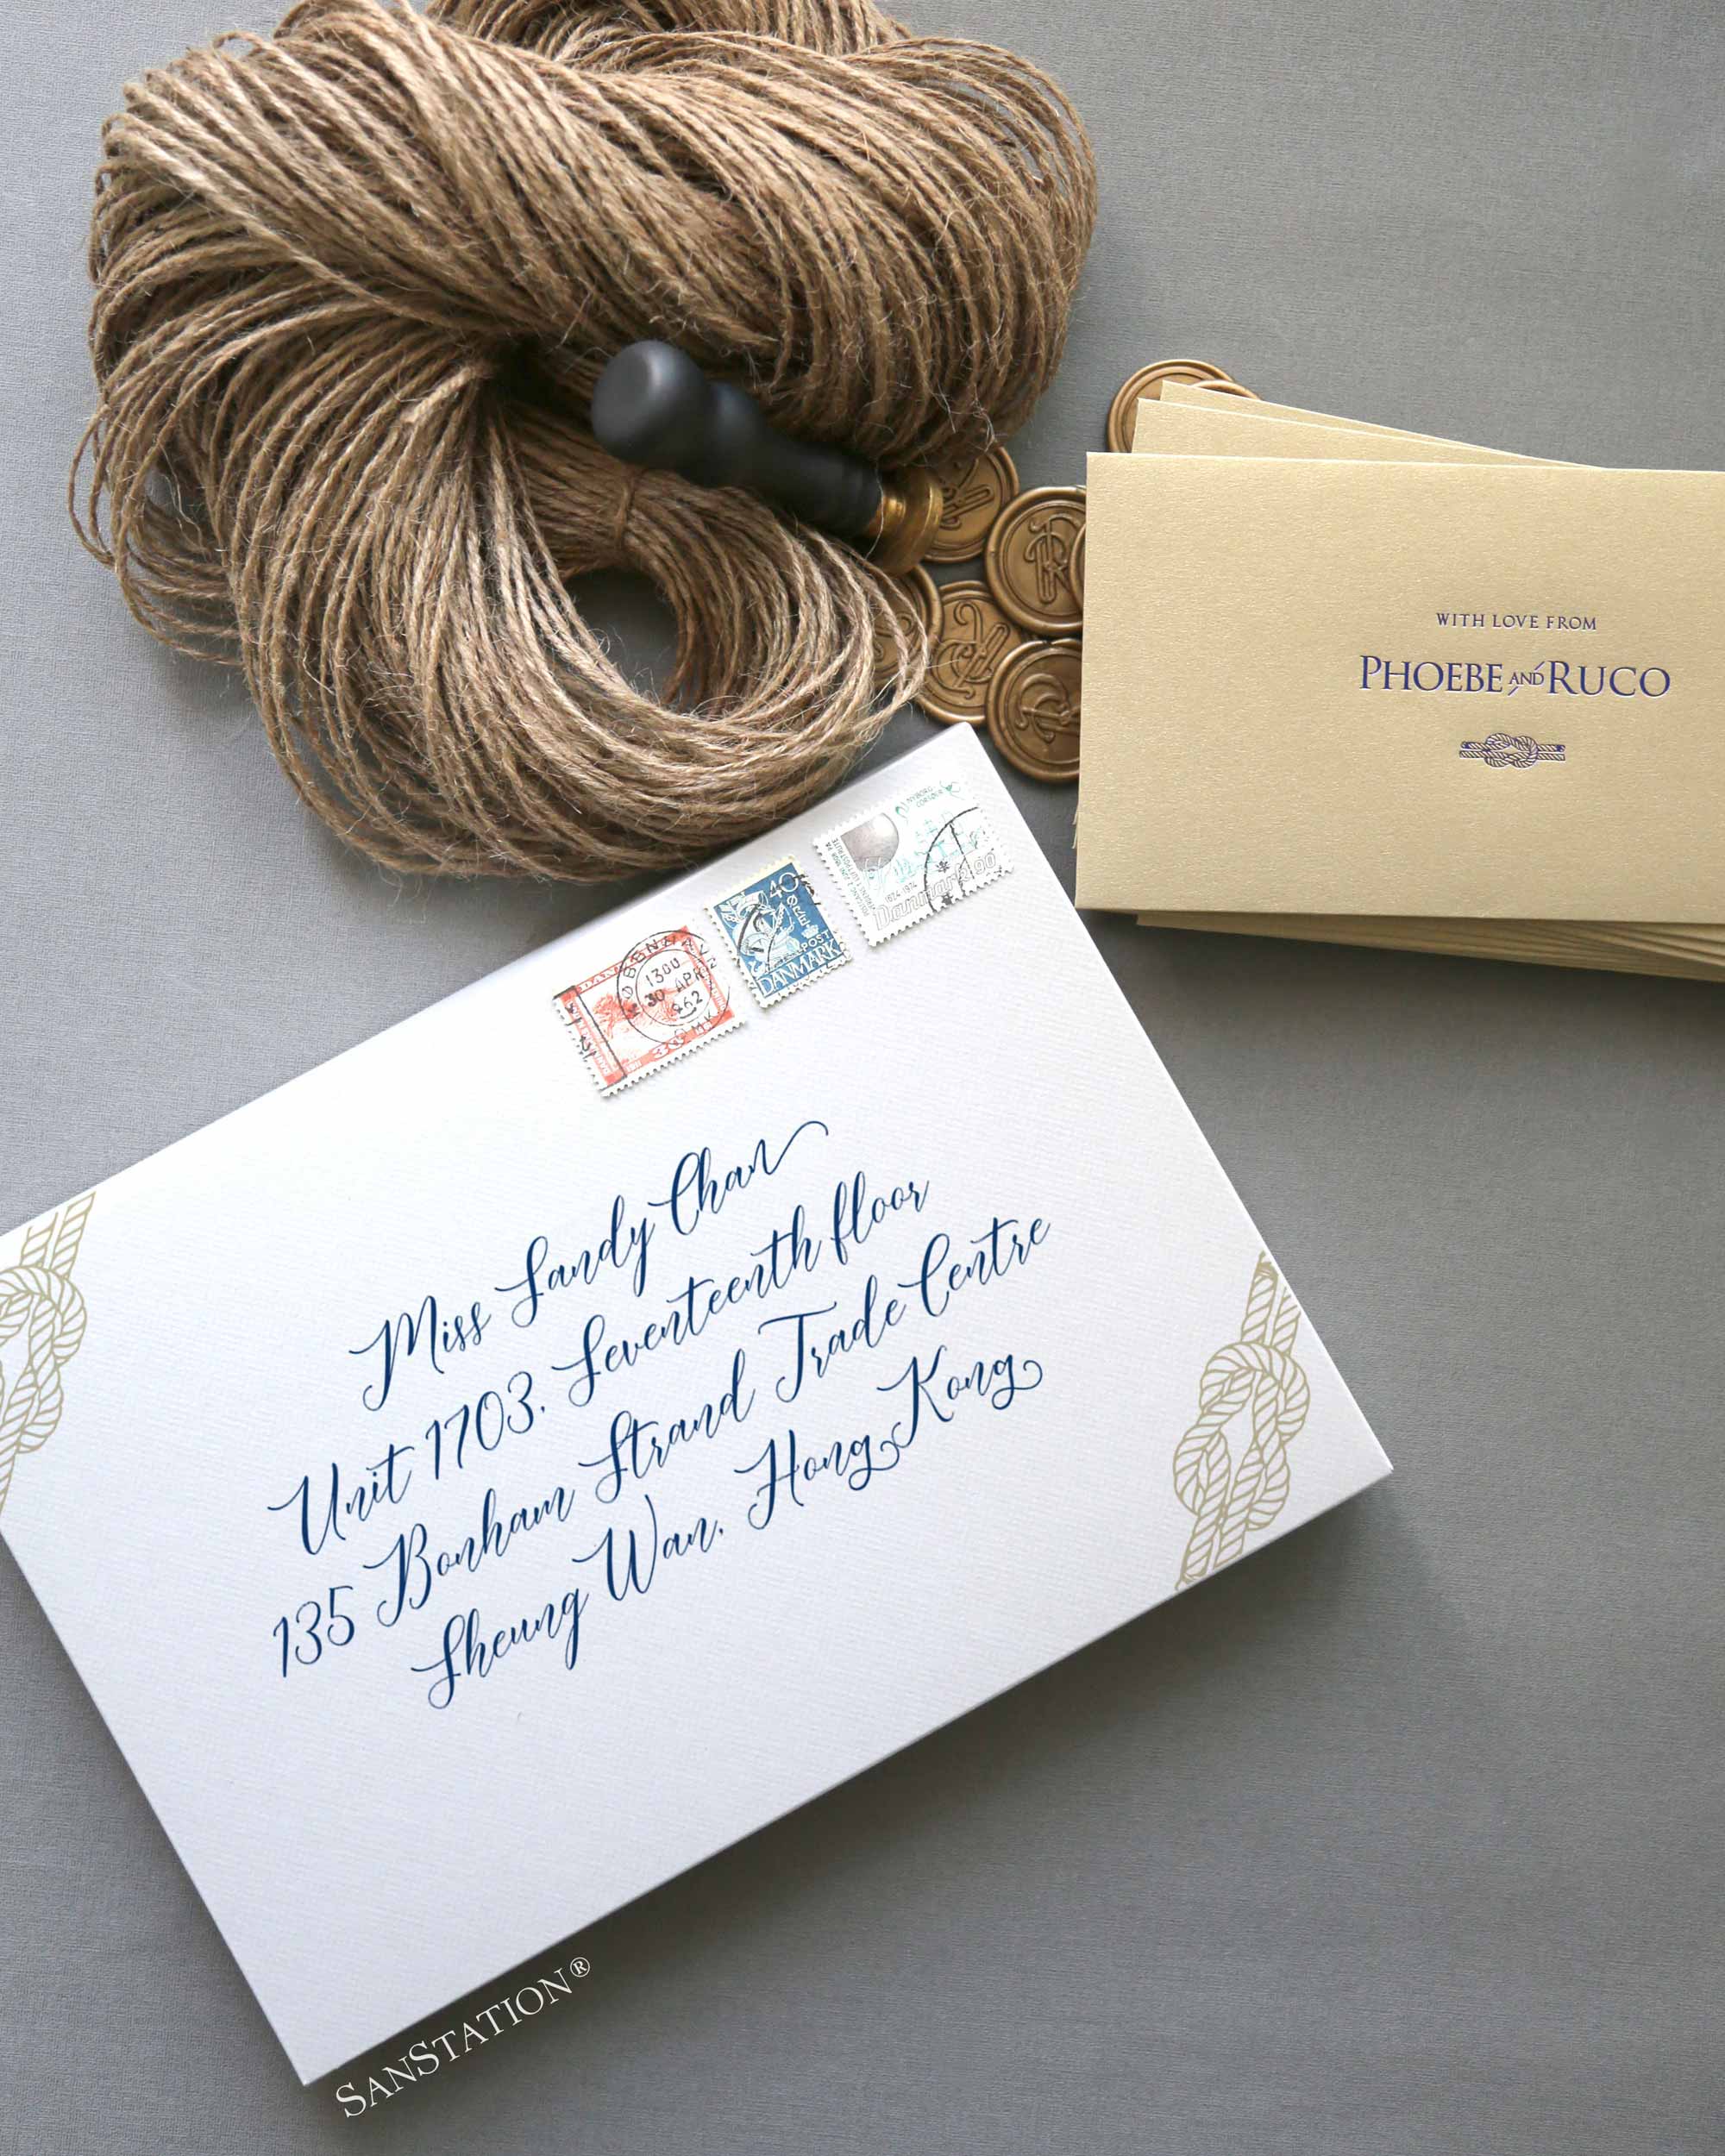 WITH LOVE FROM
PHOEBE AND RUCO
NYBORG
Danmark 90
40
ØRE
POST
DANMARK
KØBENHAVN
1300
30 APR
962
OMK
Miss Sandy Chan
Unit 1703, Seventeenth floor
135 Bonham Strand Trade Centre
Sheung Wan, Hong Kong
SANSTATION®